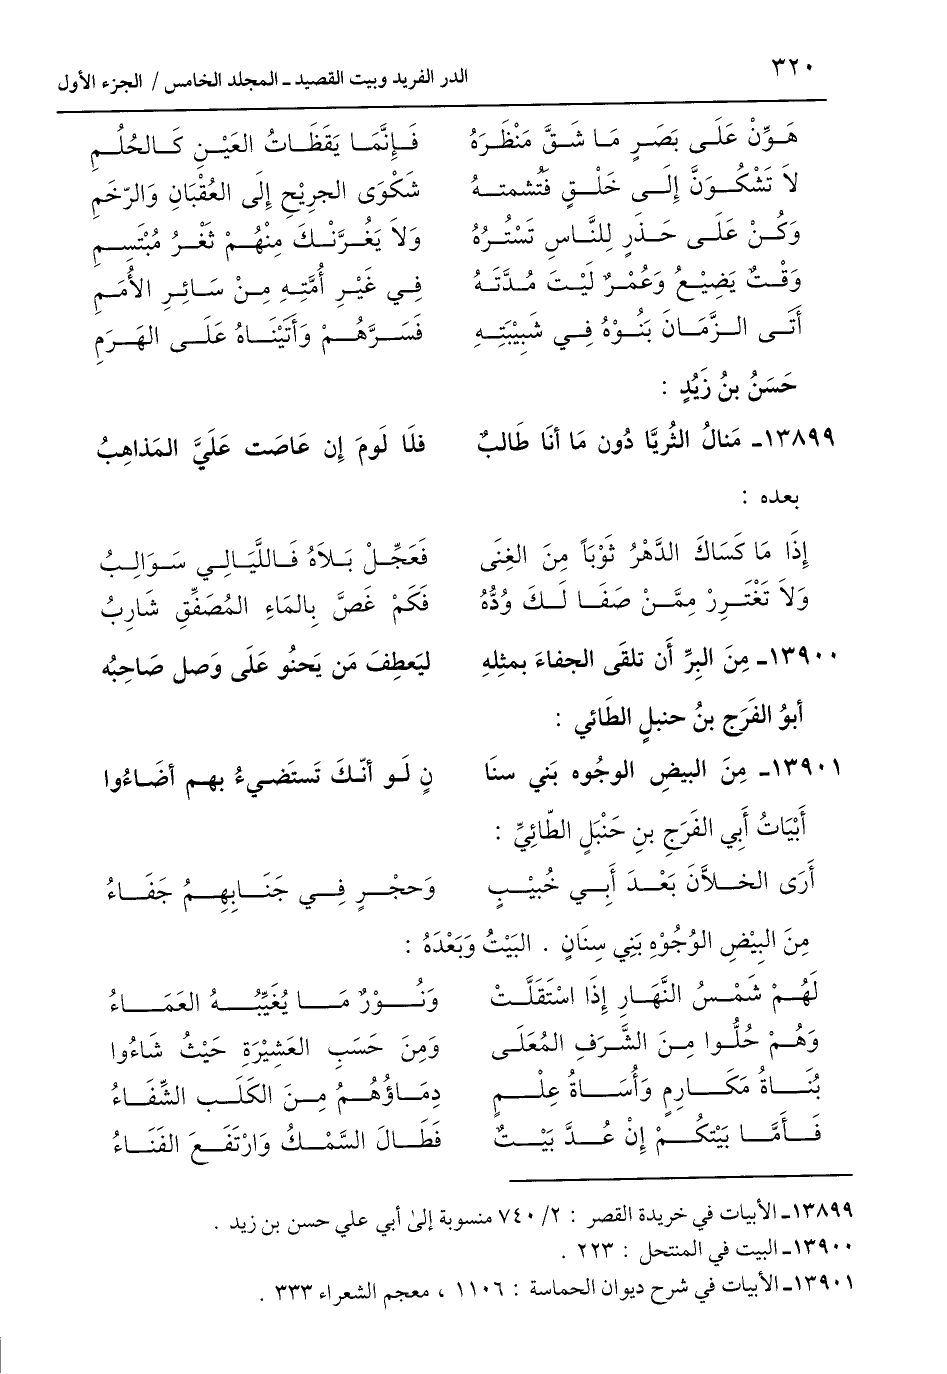 ٣٢٠ الدر الفريد وبيت القصيد ـ المجلد الخامس / الجزء الأول
هَوِّنْ عَلَى بَصَرٍ مَا شَقَّ مَنْظَرُهُ فَإِنَّمَا يَقَظَاتُ العَيْنِ كَالحُلُمِ
لاَ تَشْكُوَنَّ إِلَى خَلْقٍ فَتُشْمِتَهُ شَكْوَى الجَرِيْحِ إِلَى العُقْبَانِ وَالرَّخَمِ
وَكُنْ عَلَى حَذَرٍ لِلنَّاسِ تَسْتُرُهُ وَلاَ يَغُرَّنْكَ مِنْهُمْ ثَغْرُ مُبْتَسِمِ
وَقْتٌ يَضِيْعُ وَعُمْرٌ لَيْتَ مُدَّتَهُ فِي غَيْرِ أُمَّتِهِ مِنْ سَائِرِ الأُمَمِ
أَتَى الزَّمَانَ بَنُوْهُ فِي شَبِيْبَتِهِ فَسَرَّهُمْ وَأَتَيْنَاهُ عَلَى الهَرَمِ
حَسَنُ بنُ زَيْدٍ :
١٣٨٩٩ـ مَنالُ الثُريَّا دُون مَا أنَا طَالبٌ فلَا لَومَ إن عَاصَت عَليَّ المَذاهِبُ
بعده :
إِذَا مَا كَسَاكَ الدَّهْرُ ثَوْبَاً مِنَ الغِنَى فَعَجِّلْ بَلاَهُ فَاللَّيَالِي سَوَالِبُ
وَلاَ تَغْتَرِرْ مِمَّنْ صَفَا لَكَ وُدُّهُ فَكَمْ غَصَّ بِالمَاءِ المُصَفِّقِ شَارِبُ
١٣٩٠٠ـ مِنَ البِرِّ أن تلقَى الجفاءَ بمثلِهِ ليَعطِفَ مَن يَحنُو عَلَى وَصلِ صَاحِبُه
أبوُ الفَرَج بنُ حنبلٍ الطَائي :
١٣٩٠١ـ مِنَ البيضِ الوجُوه بَني سنَا نٍ لَو أنّكَ تَستَضيءُ بهم أضَاءُوا
أَبْيَاتُ أَبِي الفَرَجِ بنِ حَنْبَلٍ الطّائِيِّ :
أَرَى الخَلاَّنَ بَعْدَ أَبِي خُبَيْبٍ وَحجْرٍ فِي جَنَابِهِمُ جَفَاءُ
مِنَ البِيْضِ الوُجُوْهِ بَنِي سِنَانٍ . البَيْتُ وَبَعْدَهُ :
لَهُمْ شَمْسُ النَّهَارِ إِذَا اسْتَقَلَّتْ وَنُوْرٌ مَا يُغَيِّبُهُ العَمَاءُ
وَهُمْ حُلُّوا مِنَ الشَّرَفِ المُعَلَى وَمِنَ حَسَبِ العَشِيْرَةِ حَيْثُ شَاءُوا
بُنَاةُ مَكَارِمٍ وَأُسَاةُ عِلْمٍ دِمَاؤُهُمُ مِنَ الكَلَبِ الشِّفَاءُ
فَأَمَّا بَيْتكُمْ إِنْ عُدَّ بَيْتٌ فَطَالَ السَّمْكُ وَارْتَفَعَ الفَنَاءُ
١٣٨٩٩ـ الأبيات في خريدة القصر : ٢/ ٧٤٠ منسوبة إلى أبي علي حسن بن زيد .
١٣٩٠٠ـ البيت في المنتحل : ٢٢٣ .
١٣٩٠١ـ الأبيات في شرح ديوان الحماسة : ١١٠٦ ، معجم الشعراء ٣٣٣ .